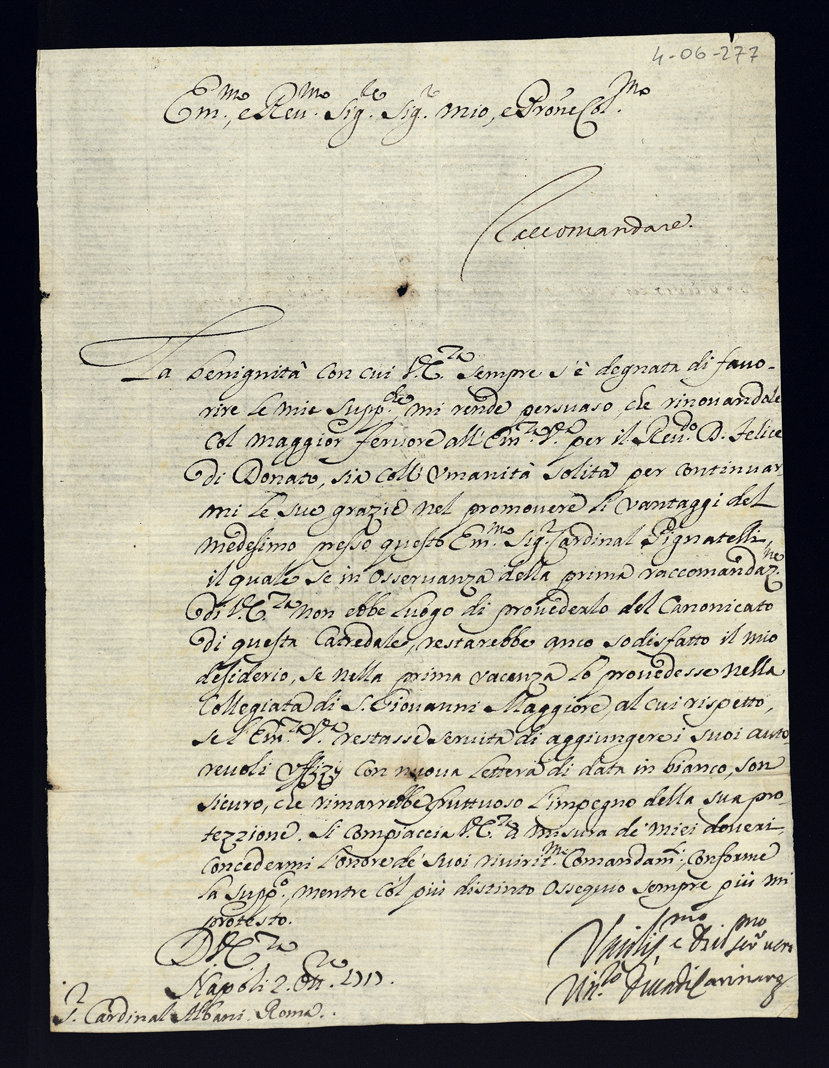 4-06-277
Em.mo, e Rev.mo Sig.re Sig.r mio, e Prone Col.mo
Raccomandare.
La benignità con cui V.E.za sempre s'è degnata di favo-
rire le mie supp.che, mi rende persuaso, che rinovandole
col maggior fervore all'Em.za V.a per il Rev.do D. Felice
di Donato, sia coll'umanità solita per continuar
mi le sue grazie nel promovere li vantaggi del
medesimo presso questo Em.mo Sig.r Cardinal Pignatelli,
il quale se in osservanza della prima raccomandaz.ne
di V.E.za non ebbe luogo di provederlo del Canonicato
di questa Catredale, restarebbe anco sodisfatto il mio
desiderio, se nella prima vacanza lo provedesse nella
Collegiata di S. Giovanni Maggiore, al cui rispetto,
se l'Em.za V.a restasse servita di aggiungere i suoi auto-
revoli uffizzj con nuova lettera di data in bianco, son
sicuro, che rimarrebbe fruttuoso l'impegno della sua pro-
tezzione. Si compiaccia V.E.za à misura de' miei doveri
concedermi l'onore de' suoi riviriti.mi Comandam.ti, conforme
la supp.co, mentre col più distinto ossequio sempre più mi
protesto.
D.V.E.za
Napoli 2. Ott.re
S.r Cardinal Albani. Roma.